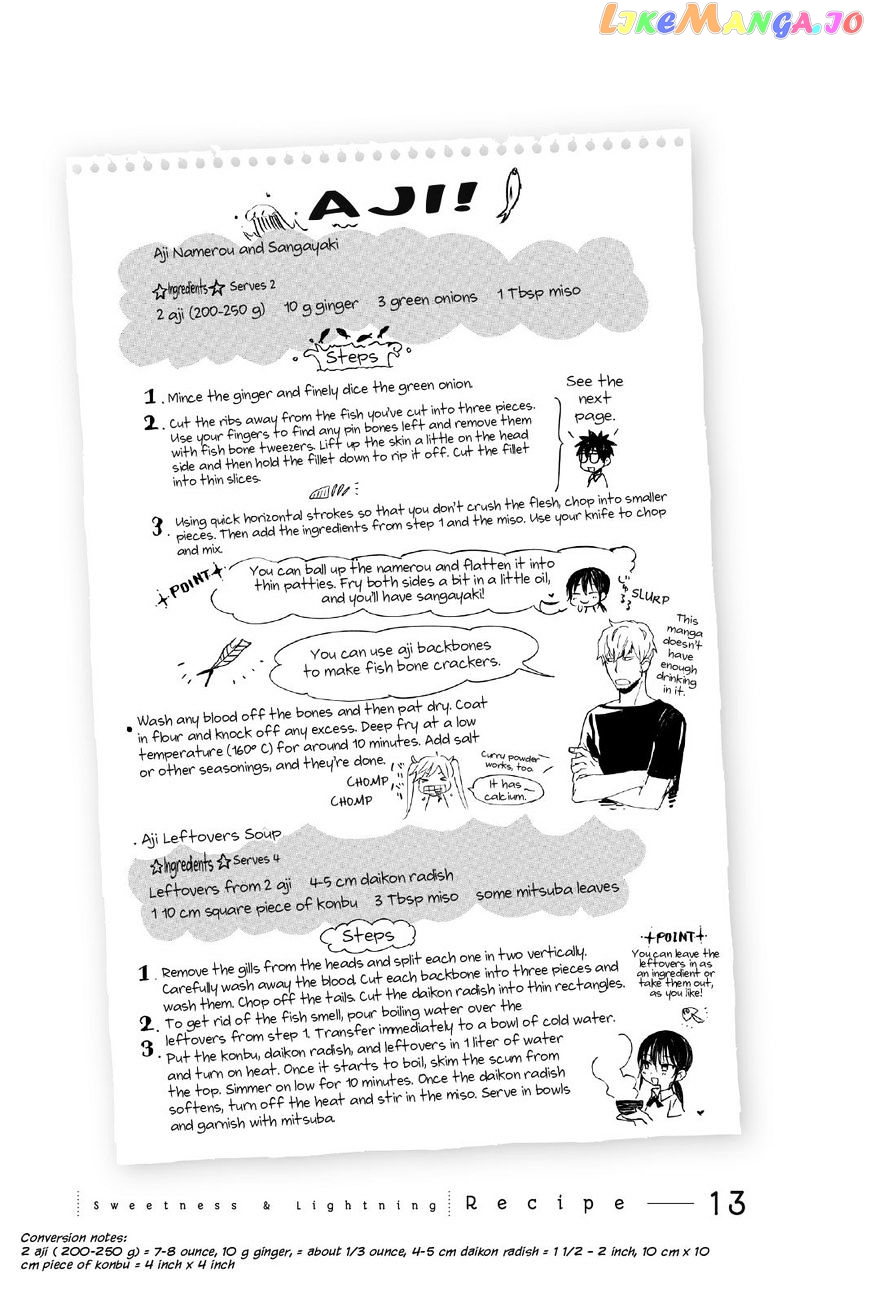 LIKEMANGA.IO
AJI!
Aji Namerou and Sangayaki
☆Ingredients☆ Serves 2
2 aji (200-250 g) 10 g ginger 3 green onions 1 Tbsp miso
Steps
1. Mince the ginger and finely dice the green onion.
2. Cut the ribs away from the fish you've cut into three pieces.
Use your fingers to find any pin bones left and remove them
with fish bone tweezers. Lift up the skin a little on the head
side and then hold the fillet down to rip it off. Cut the fillet
into thin slices.
See the
next
page.
3. Using quick horizontal strokes so that you don't crush the flesh, chop into smaller
pieces. Then add the ingredients from step 1 and the miso. Use your knife to chop
and mix.
POINT
You can ball up the namerou and flatten it into
thin patties. Fry both sides a bit in a little oil,
and you'll have sangayaki!
SLURP
This
manga
doesn't
have
enough
drinking
in it.
You can use aji backbones
to make fish bone crackers.
• Wash any blood off the bones and then pat dry. Coat
in flour and knock off any excess. Deep fry at a low
temperature (160° C) for around 10 minutes. Add salt
or other seasonings, and they're done.
CHOMP
CHOMP
Curry powder
works, too.
It has
calcium.
. Aji Leftovers Soup
☆Ingredients☆ Serves 4
Leftovers from 2 aji 4-5 cm daikon radish
1 10 cm square piece of konbu 3 Tbsp miso some mitsuba leaves
Steps
1. Remove the gills from the heads and split each one in two vertically.
Carefully wash away the blood. Cut each backbone into three pieces and
wash them. Chop off the tails. Cut the daikon radish into thin rectangles.
2. To get rid of the fish smell, pour boiling water over the
leftovers from step 1. Transfer immediately to a bowl of cold water.
3. Put the konbu, daikon radish, and leftovers in 1 liter of water
and turn on heat. Once it starts to boil, skim the scum from
the top. Simmer on low for 10 minutes. Once the daikon radish
softens, turn off the heat and stir in the miso. Serve in bowls
and garnish with mitsuba.
POINT
You can leave the
leftovers in as
an ingredient or
take them out,
as you like!
Sweetness & Lightning Recipe — 13
Conversion notes:
2 aji ( 200-250 g) = 7-8 ounce, 10 g ginger, = about 1/3 ounce, 4-5 cm daikon radish = 1 1/2 - 2 inch, 10 cm x 10
cm piece of konbu = 4 inch x 4 inch